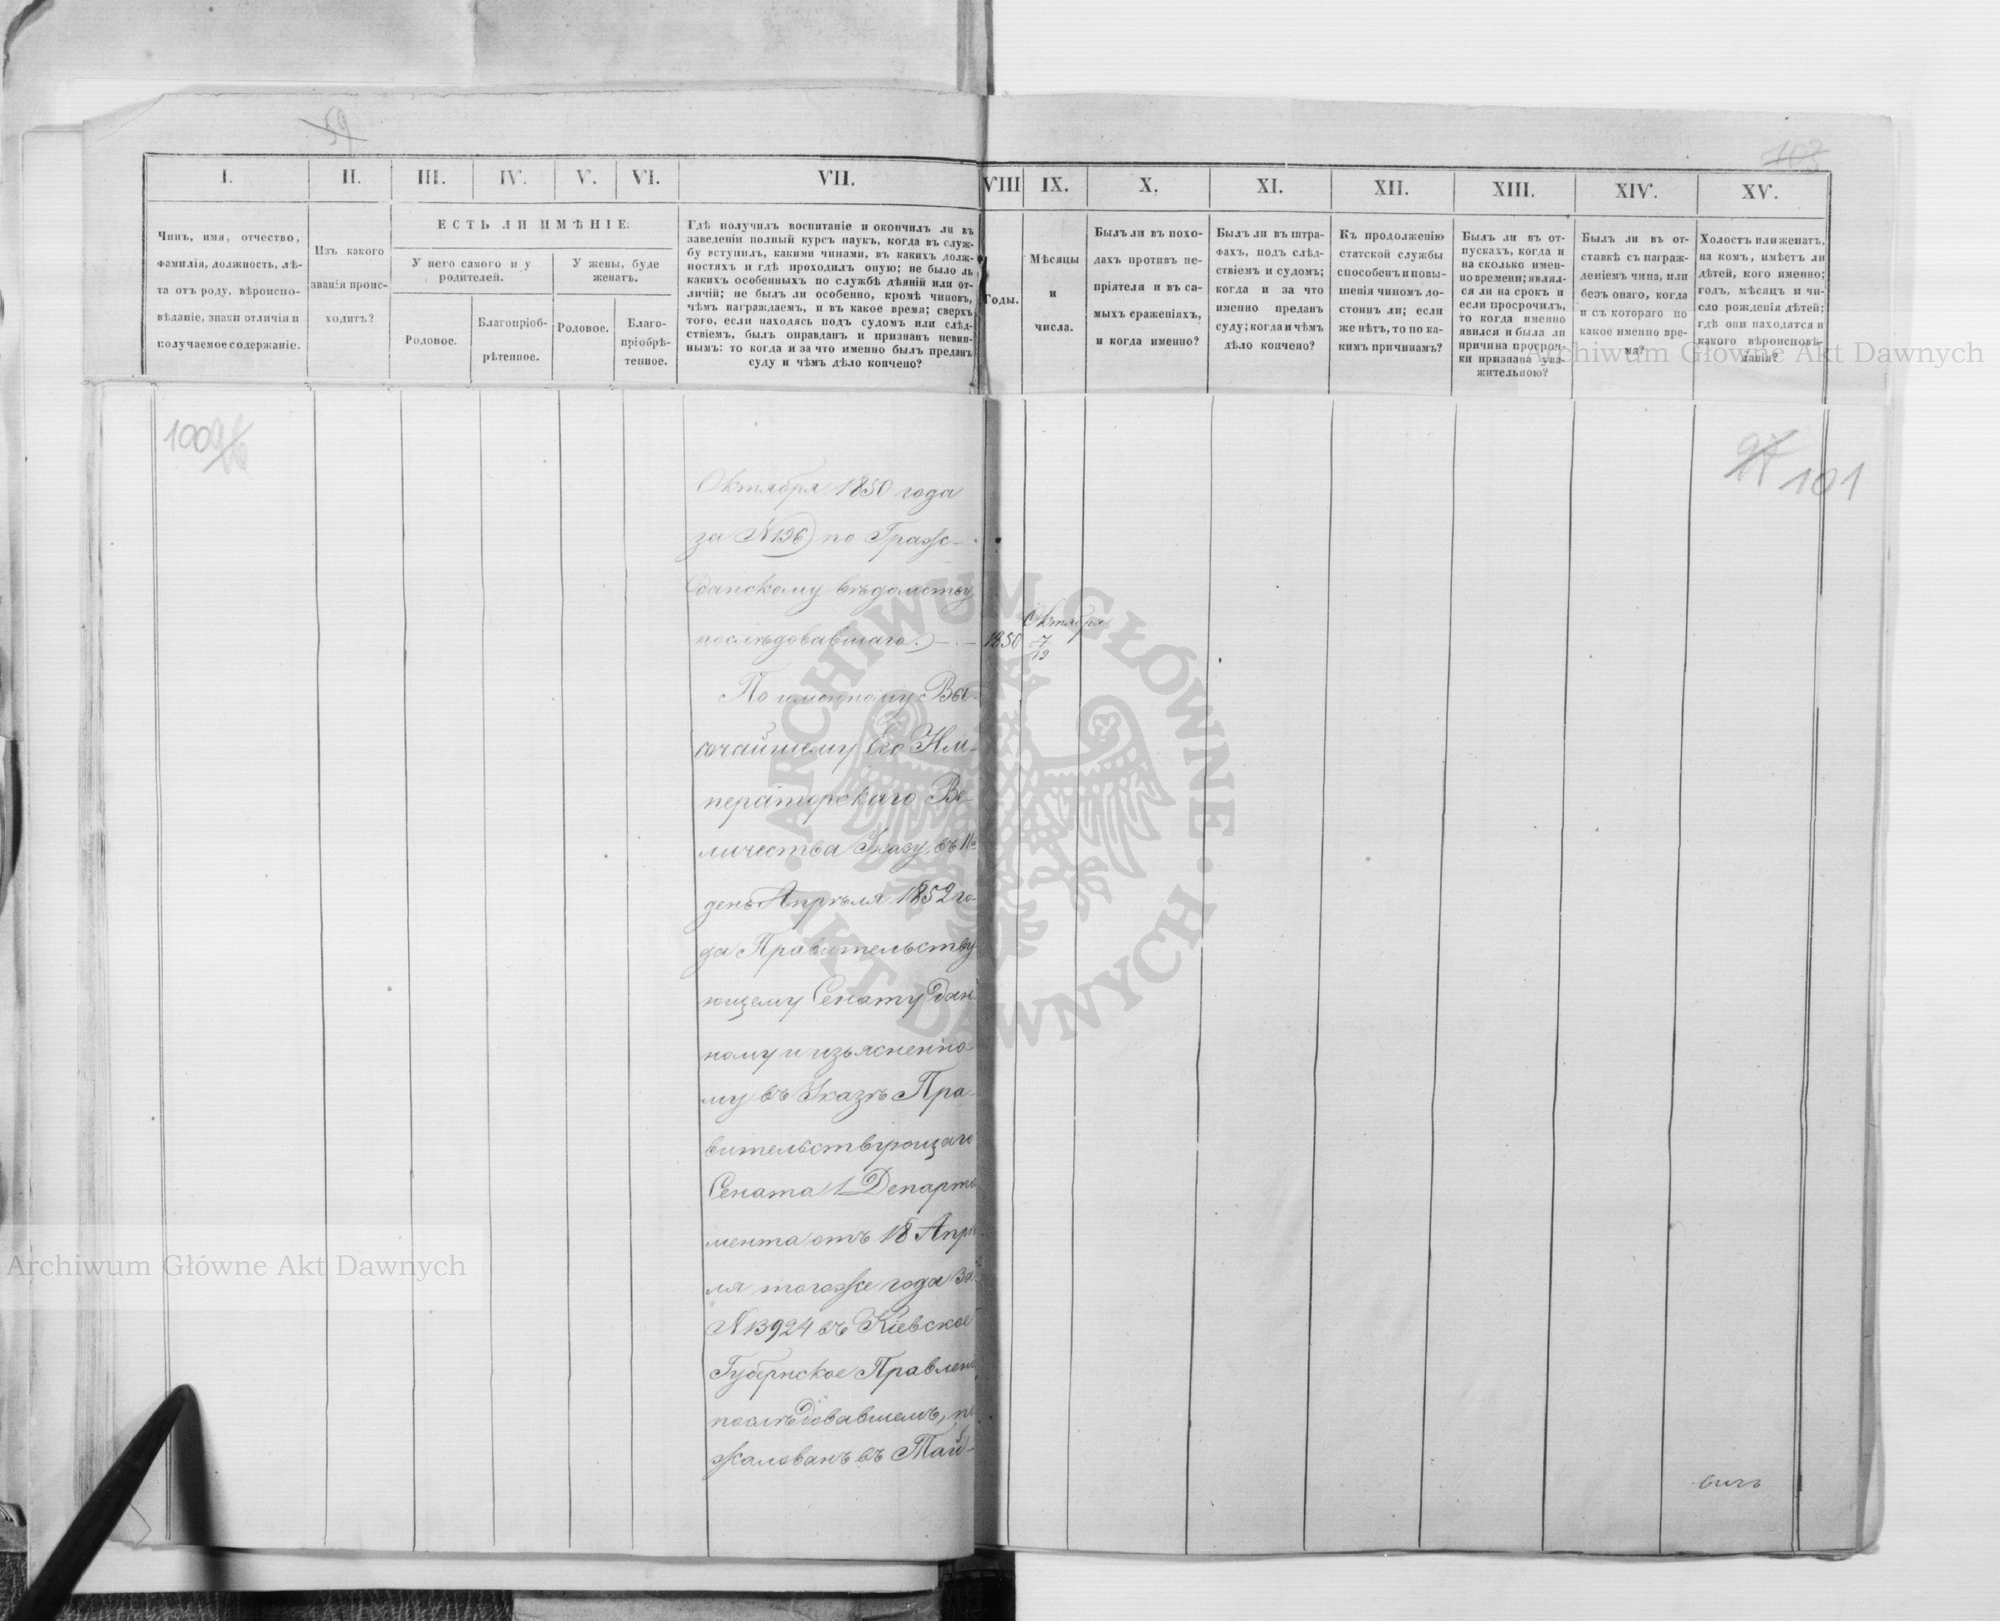 59
103
I.
II.
III.
IV.
V.
VI.
VII.
VIII
IX.
X.
XI.
XII.
XIII.
XIV.
XV.
Чинъ, имя, отчество,
фамилія, должность, лѣ-
та отъ роду, вѣроиспо-
вѣданіе, знаки отличія и
получаемое содержаніе.
Изъ какого
званія проис-
ходитъ?
ЕСТЬ ЛИ ИМѢНІЕ:
У него самого и у
родителей.
У жены, буде
женатъ.
Родовое.
Благопріоб-
рѣтенное.
Родовое.
Благо-
пріобрѣ-
тенное.
Гдѣ получилъ воспитаніе и окончилъ ли въ
заведеніи полный курсъ наукъ, когда въ служ-
бу вступилъ, какими чинами, въ какихъ долж-
ностяхъ и гдѣ проходилъ оную; не было ль
какихъ особенныхъ по службѣ дѣяній или от-
личій; не былъ ли особенно, кромѣ чиновъ,
чѣмъ награждаемъ, и въ какое время; сверхъ
того, если находясь подъ судомъ или слѣд-
ствіемъ, былъ оправданъ и признанъ невин-
нымъ: то когда и за что именно былъ преданъ
суду и чѣмъ дѣло кончено?
Годы.
Мѣсяцы
и
числа.
Былъ ли въ похо-
дахъ противъ не-
пріятеля и въ са-
мыхъ сраженіяхъ,
и когда именно?
Былъ ли въ штра-
фахъ, подъ слѣд-
ствіемъ и судомъ;
когда и за что
именно преданъ
суду; когда и чѣмъ
дѣло кончено?
Къ продолженію
статской службы
способенъ и повы-
шенія чиномъ до-
стоинъ ли; если
же нѣтъ, то по ка-
кимъ причинамъ?
Былъ ли въ от-
пускахъ, когда и
на сколько имен-
но времени; являл-
ся ли на срокъ и
если просрочилъ,
то когда именно
явился и была ли
причина просроч-
ки признана ува-
жительною?
Былъ ли въ от-
ставкѣ съ награж-
деніемъ чина, или
безъ онаго, когда
и съ котораго по
какое именно вре-
мя?
Холостъ или женатъ,
на комъ, имѣетъ ли
дѣтей, кого именно;
годъ, мѣсяцъ и чи-
сло рожденія дѣтей;
гдѣ они находятся и
какого вѣроисповѣ-
данія?
Archiwum Główne Akt Dawnych
100
97
101
Октября 1850 года
за N196) по Граж-
данскому вѣдомству
послѣдовавшаго.)
1850
Октября
7/19
По имянному Вы-
сочайшему Его Им-
ператорскаго Ве-
личества Указу, въ 11й
день Апрѣля 1852 го-
да Правительству-
ющему Сенату дан-
ному и изъясненно-
му въ Указѣ Пра-
вительствующаго
Сената 1 Департа
мента отъ 18 Апрѣ-
ля тогоже года за
N13924 въ Кіевское
Губернское Правлені
послѣдовавшемъ, по
жалованъ въ Тай-
вичъ
ARCHIWUM GŁÓWNE · AKT DAWNYCH ·
Archiwum Główne Akt Dawnych